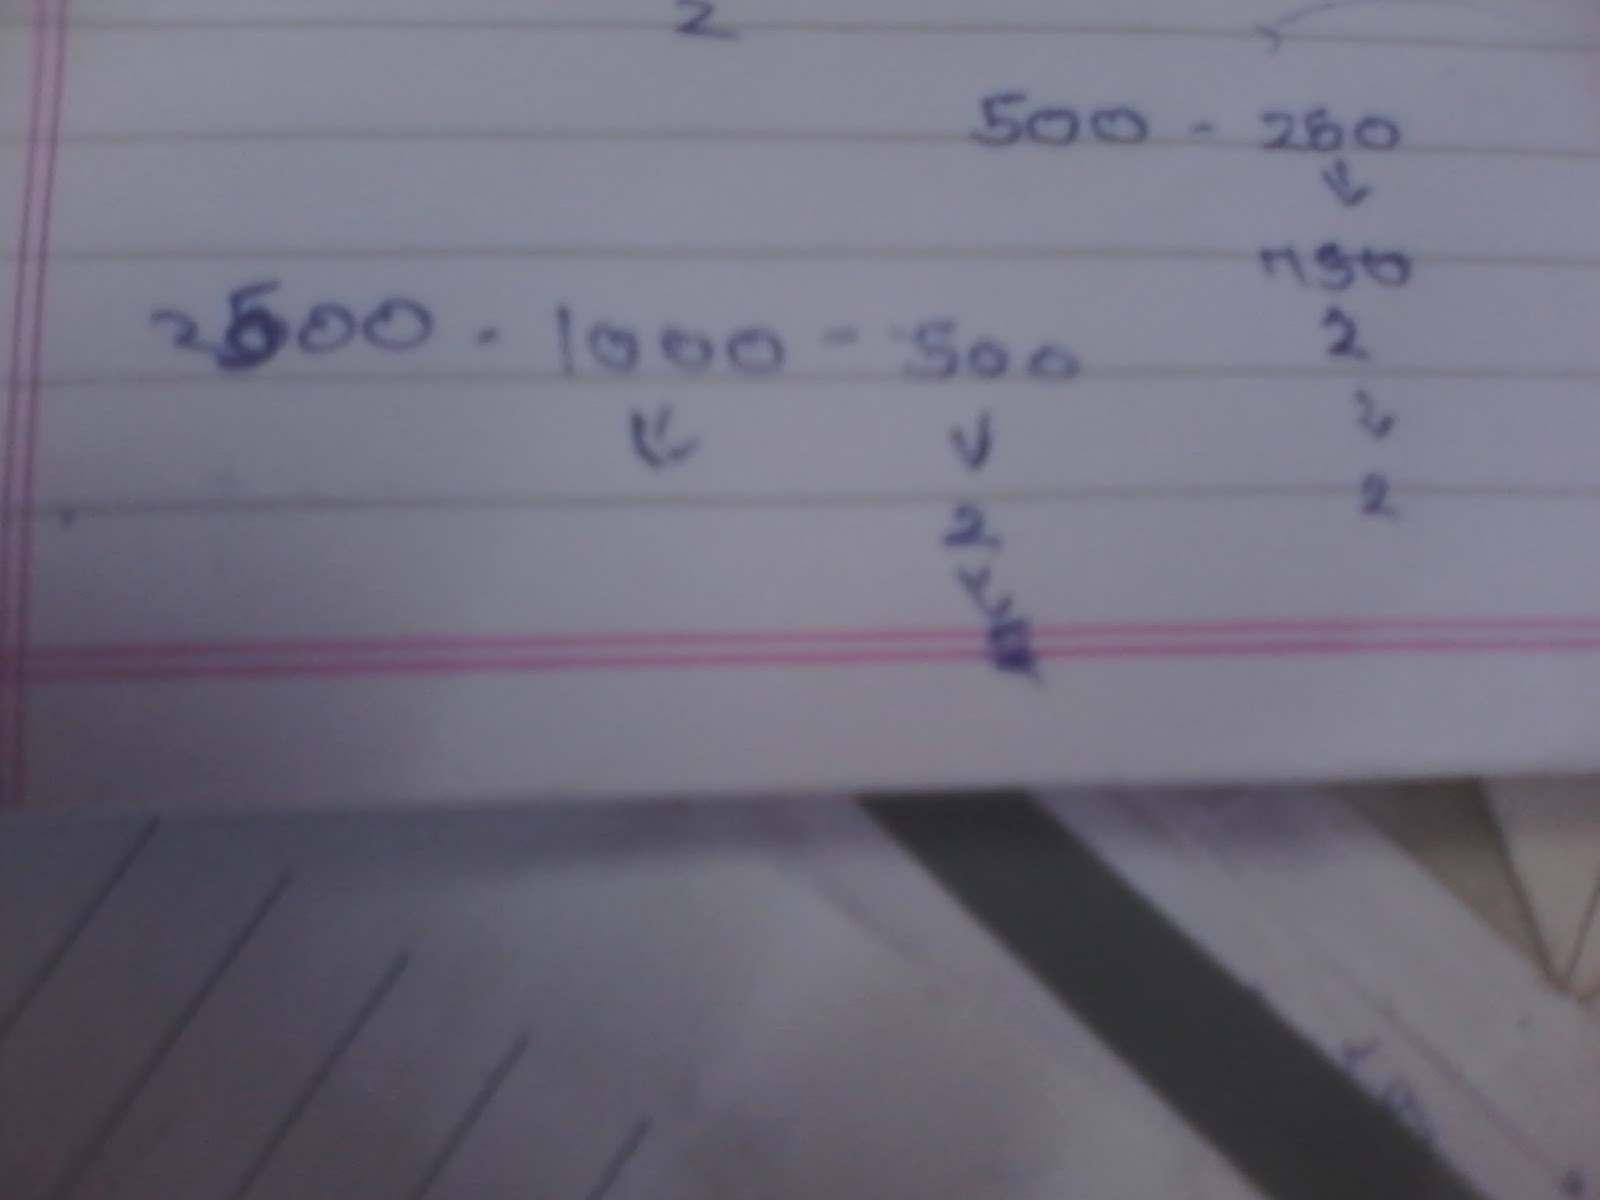 2
500 - 250
750
2500 - 1000 - 500
2
2
2